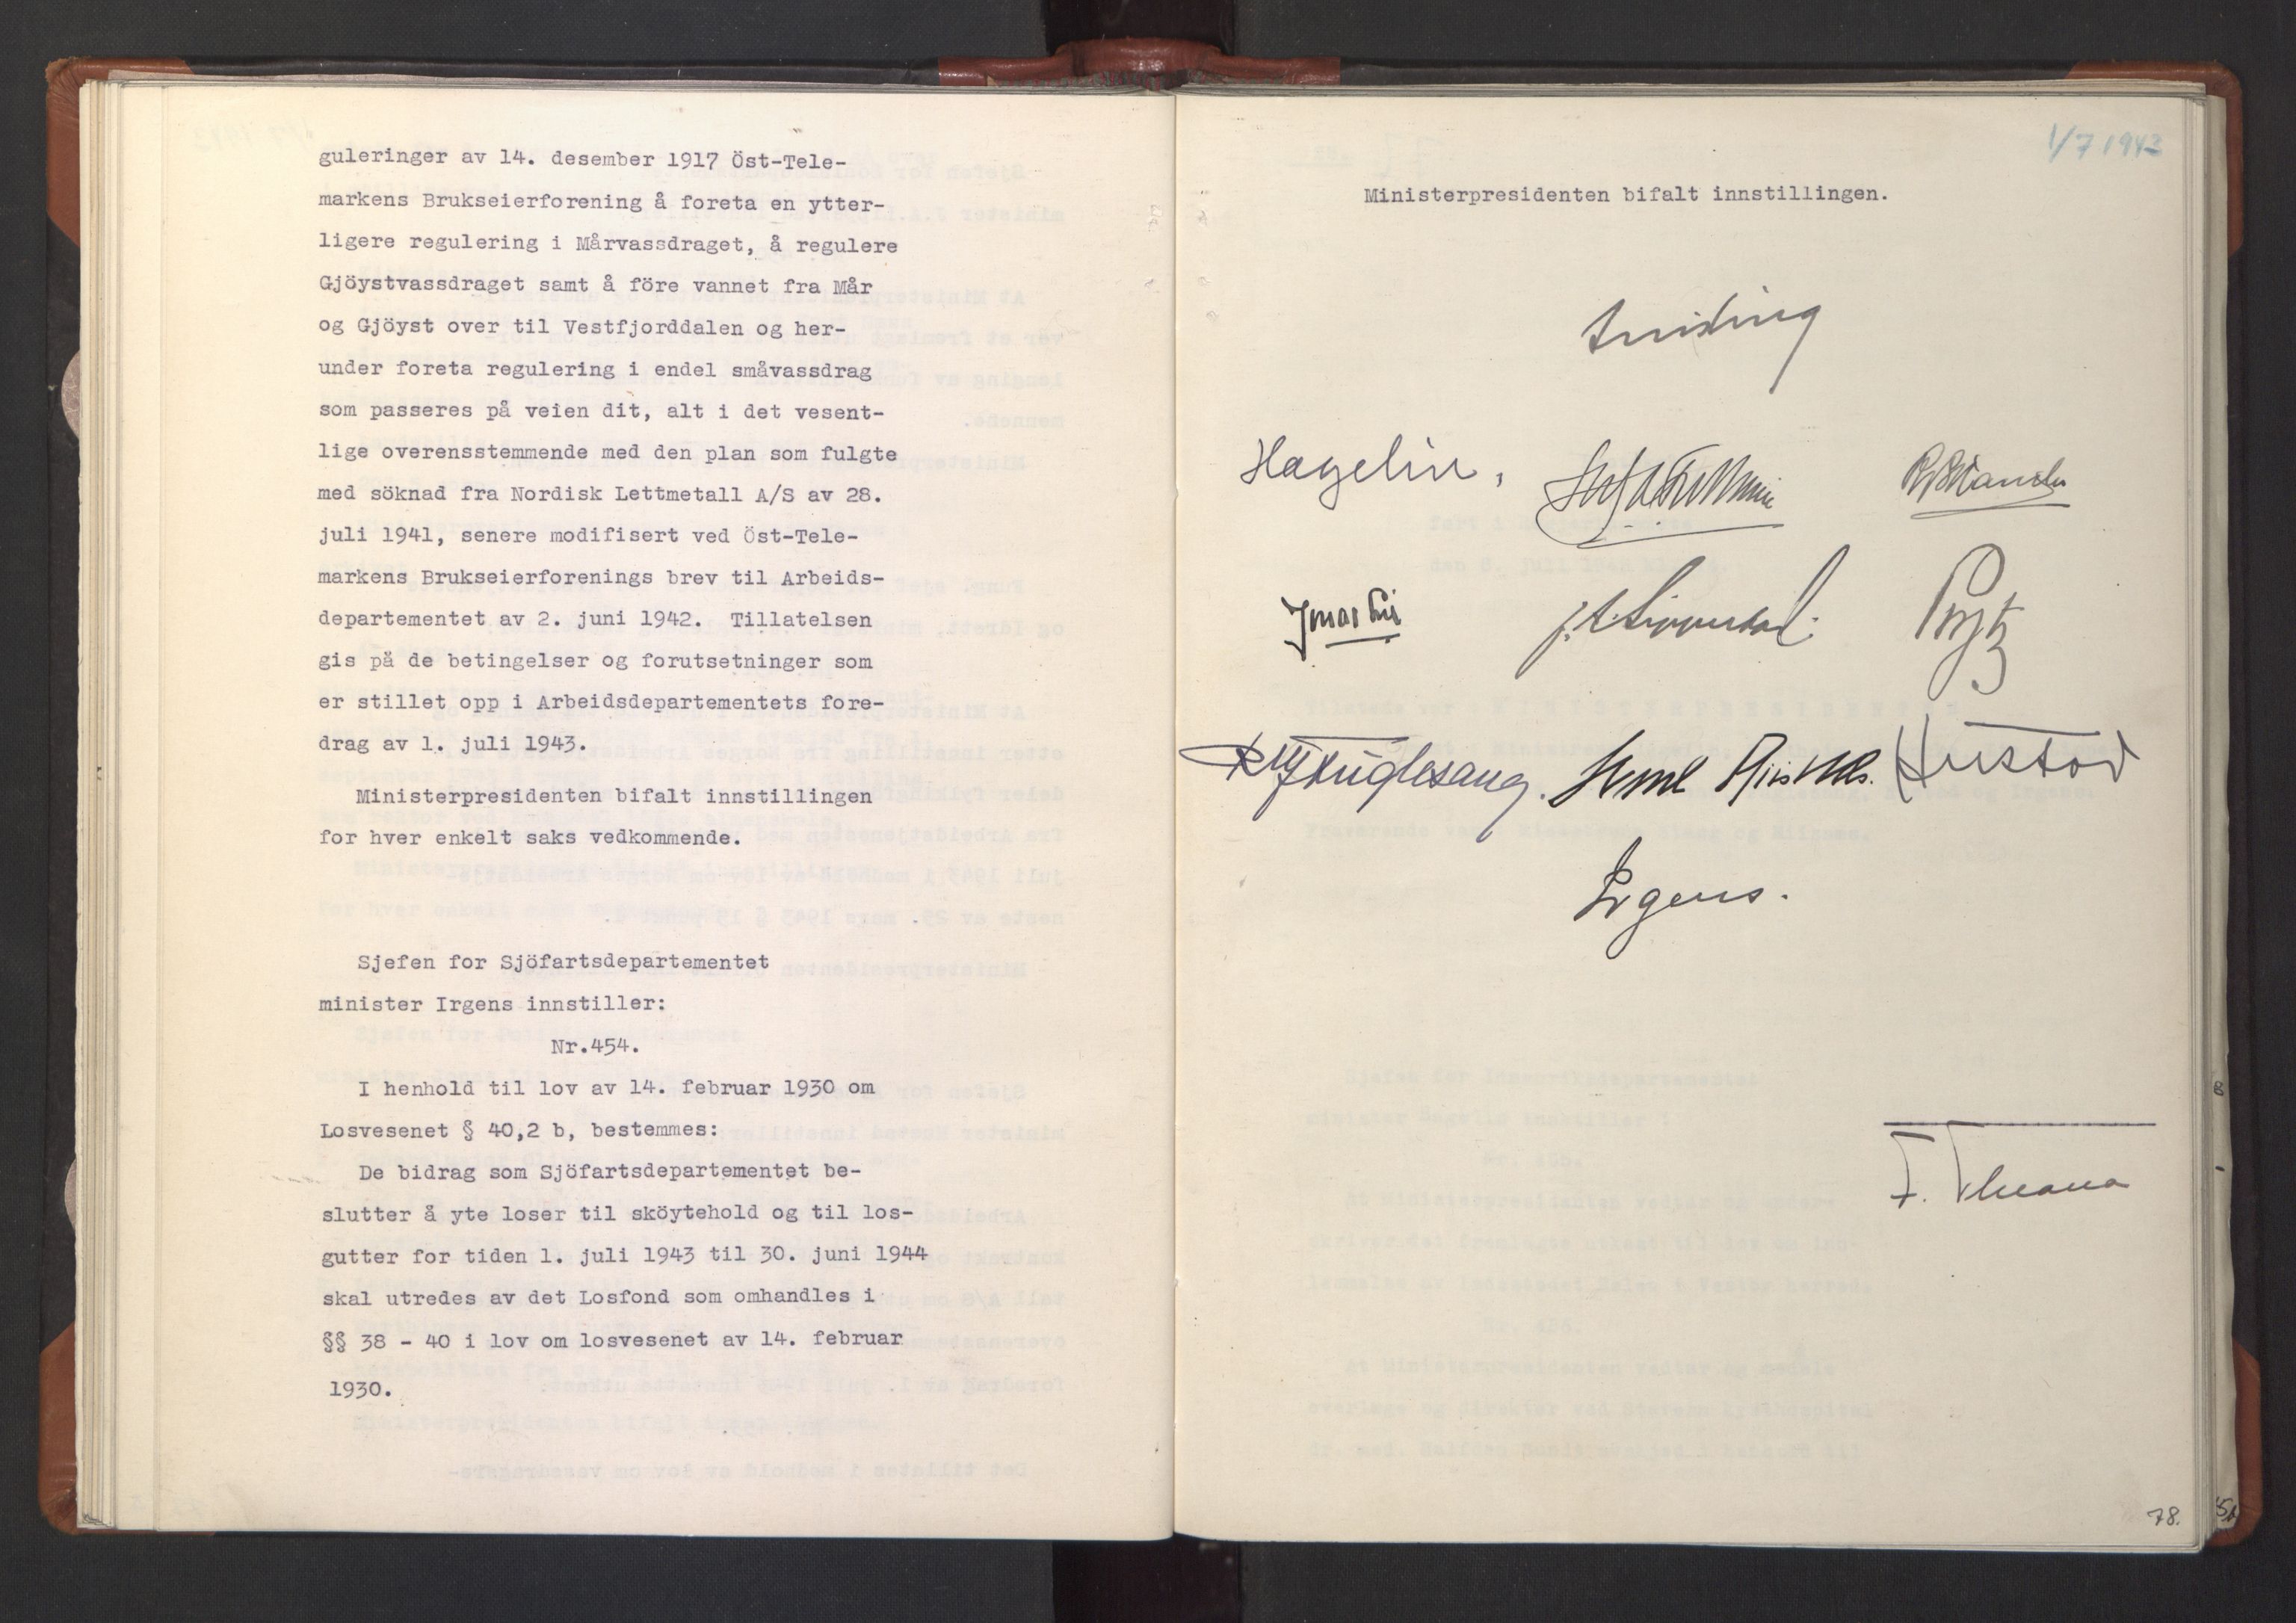 guleringer av 14. desember 1917 Öst-Tele-
markens Brukseierforening å foreta en ytter-
ligere regulering i Mårvassdraget, å regulere
Gjöystvassdraget samt å före vannet fra Mår
og Gjöyst over til Vestfjorddalen og her-
under foreta regulering i endel småvassdrag
som passeres på veien dit, alt i det vesent-
lige overensstemmende med den plan som fulgte
med söknad fra Nordisk Lettmetall A/S av 28.
juli 1941, senere modifisert ved Öst-Tele-
markens Brukseierforenings brev til Arbeids-
departementet av 2. juni 1942. Tillatelsen
gis på de betingelser og forutsetninger som
er stillet opp i Arbeidsdepartementets fore-
drag av 1. juli 1943.
Ministerpresidenten bifalt innstillingen
for hver enkelt saks vedkommende.
Sjefen for Sjöfartsdepartementet
minister Irgens innstiller:
Nr.454.
I henhold til lov av 14. februar 1930 om
Losvesenet § 40,2 b, bestemmes:
De bidrag som Sjöfartsdepartementet be-
slutter å yte loser til sköytehold og til los-
gutter for tiden 1. juli 1943 til 30. juni 1944
skal utredes av det Losfond som omhandles i
§§ 38 - 40 i lov om losvesenet av 14. februar
1930.
1/7 1943
Ministerpresidenten bifalt innstillingen.
Quisling
Hagelin.
Jonas Lie
Prytz
R J Fuglesang.
Hustad
Irgens.
78.